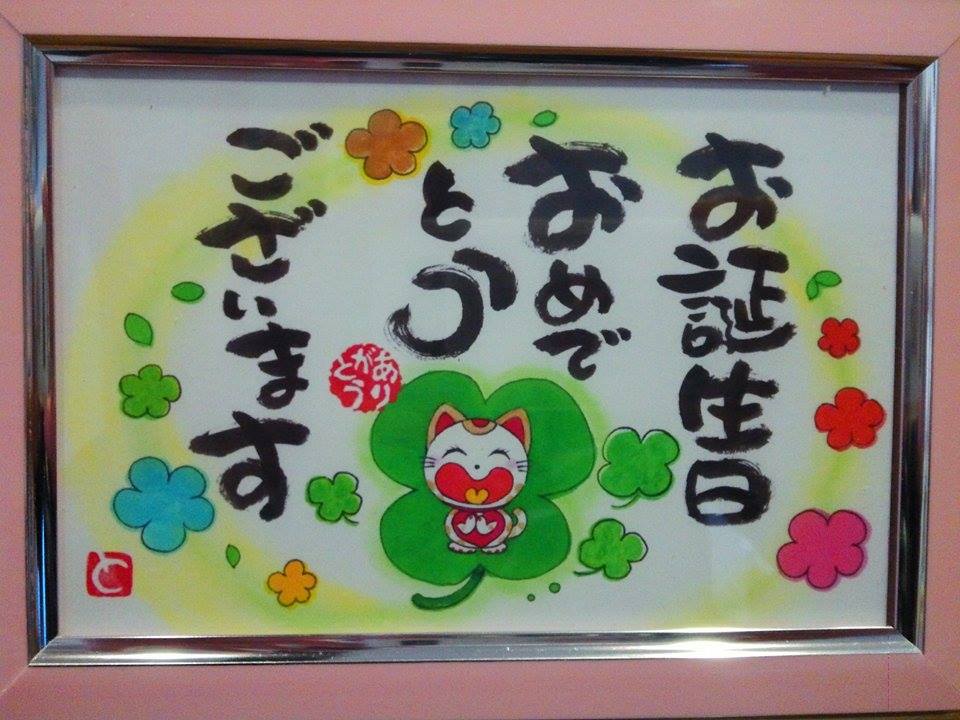 お誕生日
おめで
とう
ございます
ありがとう
と